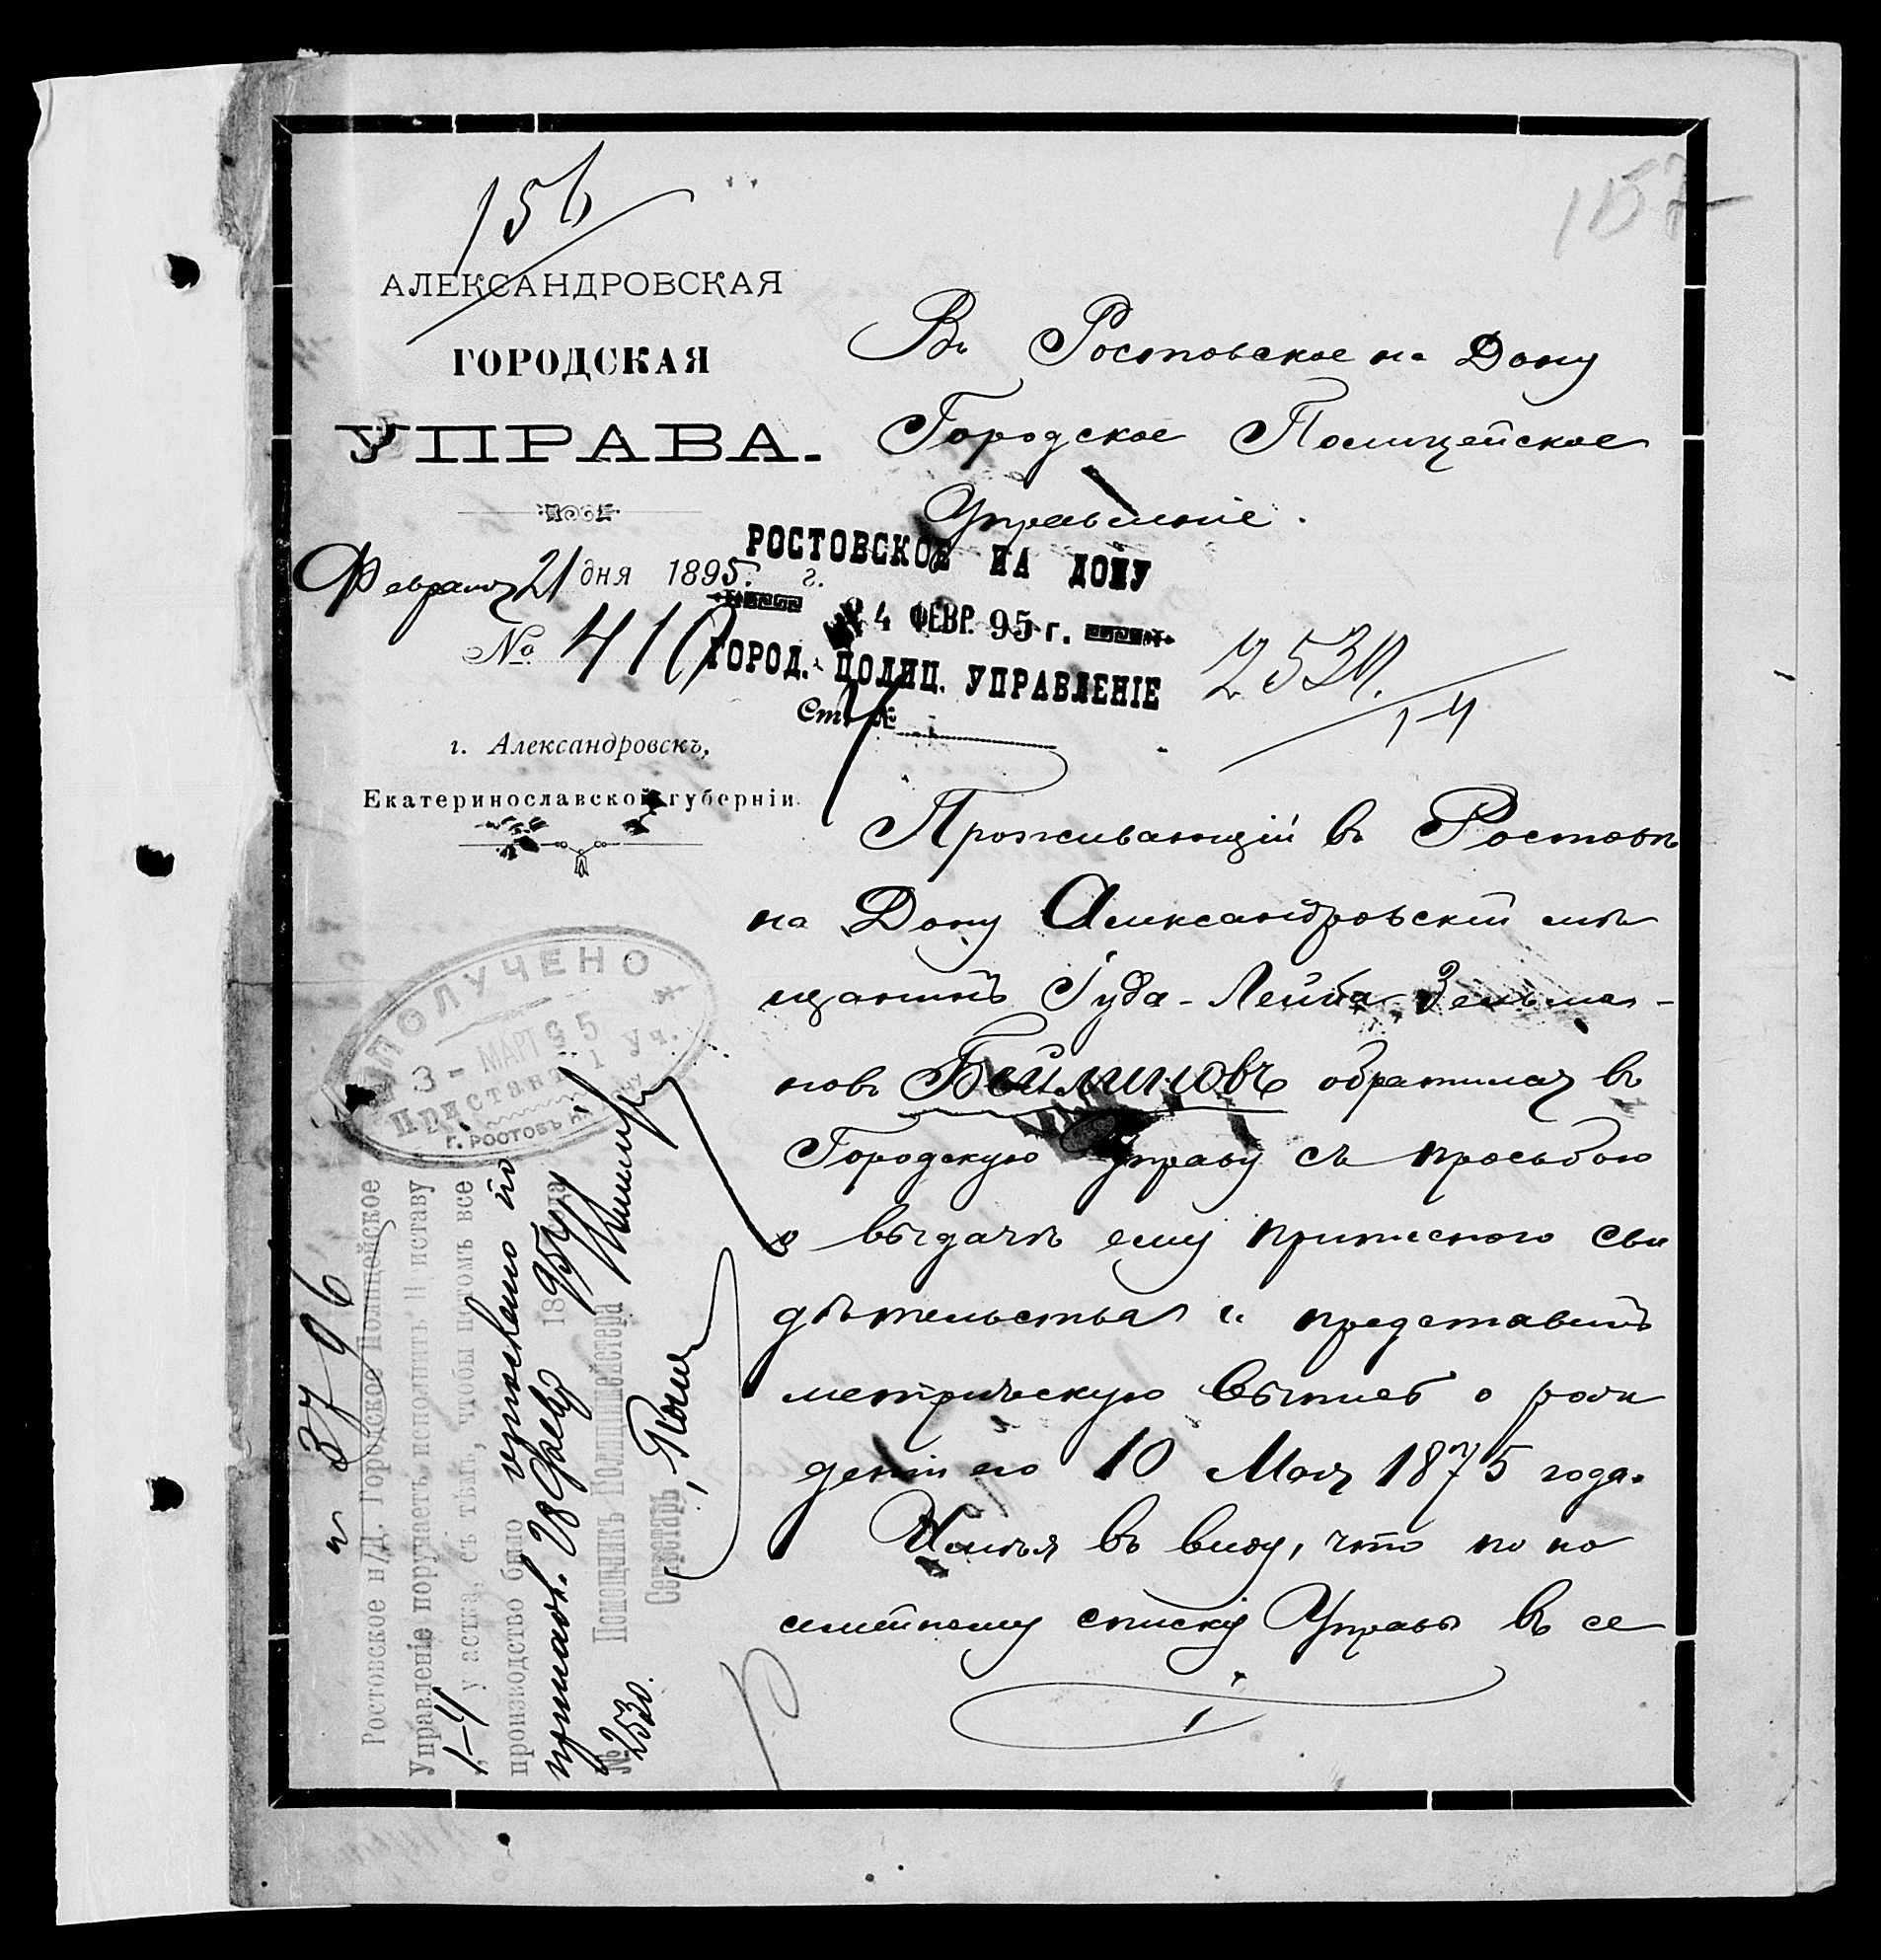 156
157
АЛЕКСАНДРОВСКАЯ
ГОРОДСКАЯ
УПРАВА.
Февраля 21 дня 1895. г.
№ 410
г. Александровскъ,
Екатеринославской губерніи.
Въ Ростовское на Дону
Городское Полицейское
Управленіе.
РОСТОВСКОЕ НА ДОНУ
24 ФЕВР. 95 г.
ГОРОД. ПОЛИЦ. УПРАВЛЕНІЕ
Ст. №
2530.
1-4
Проживающій въ Ростовѣ
на Дону Александровскій мѣ
щанинъ Іуда-Лейба Зельма-
новъ Бейлиновъ обратился въ
Городскую Управу съ просьбою
о выдачѣ ему приписного сви
дѣтельства и представилъ
метрическую выпись о рож
деніи его 10 Мая 1875 года.
Имѣя въ виду, что по по
семейному списку Управы въ се
ПОЛУЧЕНО
3 - МАРТ 95
Пристава 1 Уч.
Г. РОСТОВЪ Н/ДОНУ
№ 3796
Ростовское н/Д. Городское Полицейское
Управленіе поручаетъ исполнить приставу
1-4 участка, съ тѣмъ, чтобы потомъ все
производство было
28 Февр 1895 года
Помощникъ Полицмейстера
Секретарь
№ 2530.